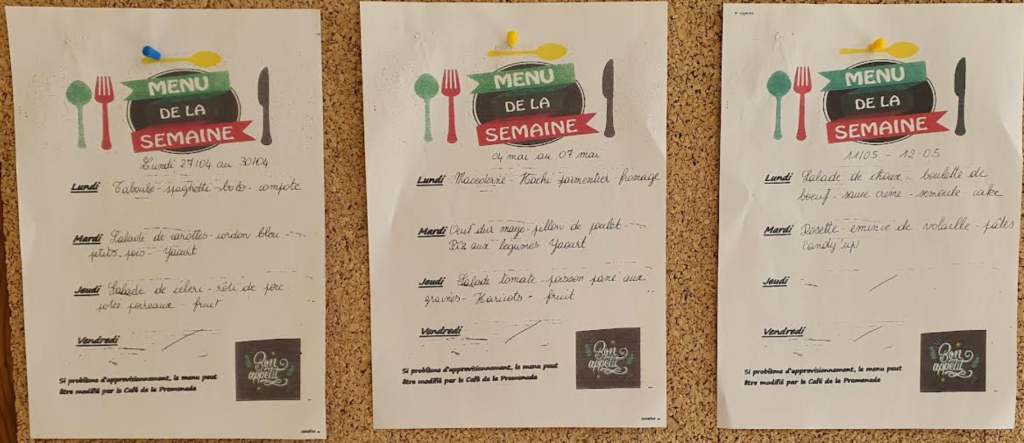 MENU
DE LA
SEMAINE
Lundi 27/04 au 30/04
Lundi Taboulé - spaghetti - bolo - compote
Mardi Salade de carottes - cordon bleu
petits pois - Yaourt
Jeudi Salade de céleri - rôti de porc
poireaux - fruit
Vendredi
Bon appétit
Si problème d'approvisionnement, le menu peut
être modifié par le Café de la Promenade
MENU
DE LA
SEMAINE
04 mai au 07 mai
Lundi Macédoine - Hachi parmentier - fromage
Mardi Oeuf dur mayo - pillon de poulet -
Riz aux legumes Yaourt
Jeudi Salade tomate - poisson pané aux
graines - Haricots - fruit
Vendredi
Bon appétit
Si problème d'approvisionnement, le menu peut
être modifié par le Café de la Promenade
MENU
DE LA
SEMAINE
11/05 - 12-05
Lundi Salade de choux - boulette de
boeuf - sauce creme - semoule cake
Mardi Rosette - émincé de volaille - pâtes
candy'up
Jeudi
Vendredi
Bon appétit
Si problème d'approvisionnement, le menu peut
être modifié par le Café de la Promenade